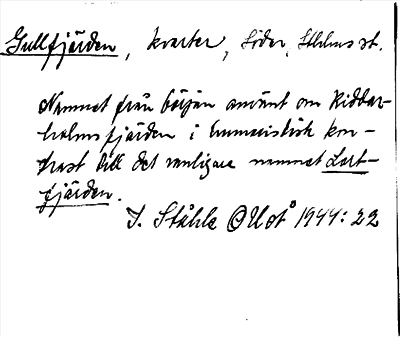 Gullfjärden, kvarter, Söder, Sthlms st.
Namnet från början använt om Riddar-
holmsfjärden i humoristisk kon-
trast till det vanligare namnet Lort-
fjärden.
I. Ståhle Ortnst 1944: 22